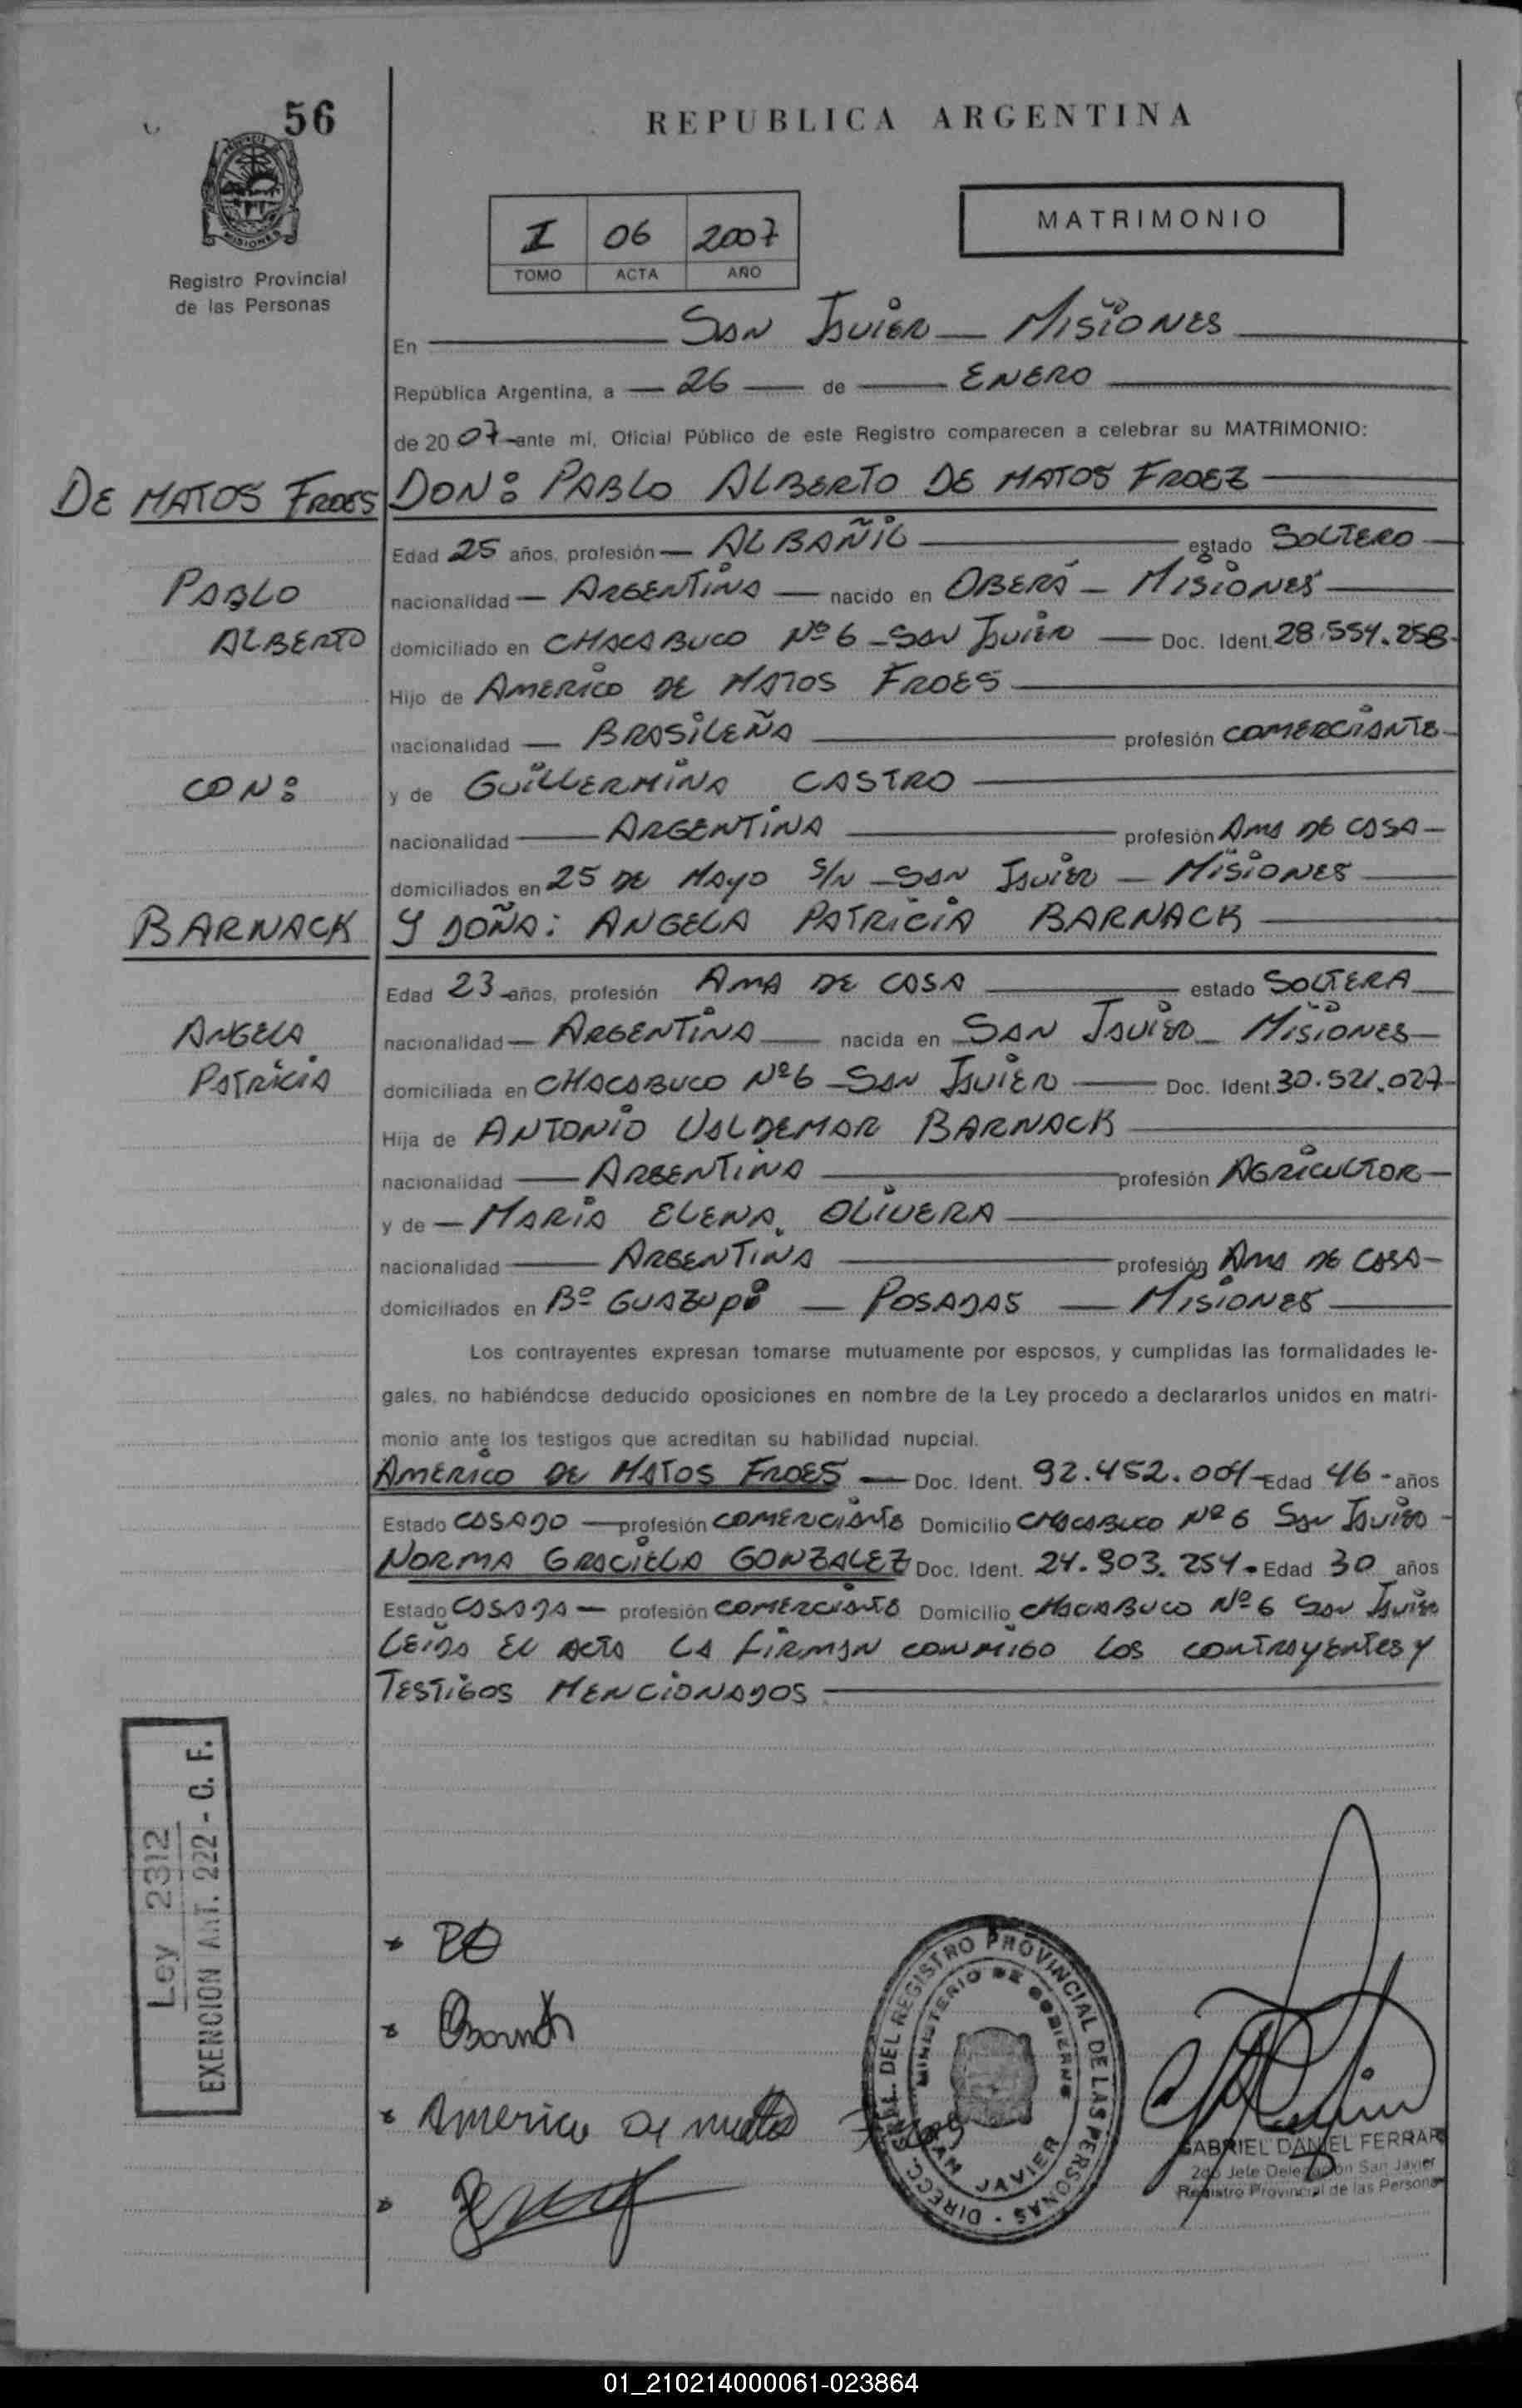 56
REPUBLICA ARGENTINA
MISIONES
Registro Provincial
de las Personas
I 06 2007
TOMO ACTA AÑO
MATRIMONIO
En SAN JAVIER - MISIONES
República Argentina, a 26 de ENERO
de 20 07 ante mi, Oficial Público de este Registro comparecen a celebrar su MATRIMONIO:
DE MATOS FROES
PABLO
ALBERTO
CON:
BARNACK
ANGELA
PATRICIA
DON: PABLO ALBERTO DE MATOS FROEZ
Edad 25 años, profesión ALBAÑIL estado SOLTERO
nacionalidad ARGENTINA nacido en OBERÁ - MISIONES
domiciliado en CHACABUCO Nº 6 - SAN JAVIER Doc. Ident. 28.554.258
Hijo de AMERICO DE MATOS FROES
nacionalidad BRASILEÑA profesión COMERCIANTE
y de GUILLERMINA CASTRO
nacionalidad ARGENTINA profesión AMA DE CASA
domiciliados en 25 DE MAYO S/N - SAN JAVIER - MISIONES
Y DOÑA: ANGELA PATRICIA BARNACK
Edad 23 años, profesión AMA DE CASA estado SOLTERA
nacionalidad ARGENTINA nacida en SAN JAVIER - MISIONES
domiciliada en CHACABUCO Nº 6 - SAN JAVIER Doc. Ident. 30.521.027
Hija de ANTONIO VALDEMAR BARNACK
nacionalidad ARGENTINA profesión AGRICULTOR
y de MARIA ELENA OLIVERA
nacionalidad ARGENTINA profesión AMA DE CASA
domiciliados en Bº GUAZUPI - POSADAS - MISIONES
Los contrayentes expresan tomarse mutuamente por esposos, y cumplidas las formalidades le-
gales, no habiéndose deducido oposiciones en nombre de la Ley procedo a declararlos unidos en matri-
monio ante los testigos que acreditan su habilidad nupcial.
AMERICO DE MATOS FROES Doc. Ident. 92.452.004 Edad 46 años
Estado CASADO profesión COMERCIANTE Domicilio CHACABUCO Nº 6 SAN JAVIER
NORMA GRACIELA GONZALEZ Doc. Ident. 24.903.254 Edad 30 años
Estado CASADA profesión COMERCIANTE Domicilio CHACABUCO Nº 6 SAN JAVIER
LEIDA EL ACTA LA FIRMAN CONMIGO LOS CONTRAYENTES Y
TESTIGOS MENCIONADOS
Ley 2312
EXENCION ART. 222 - C. F.
Americo De matos
DIRECC. GRAL. DEL REGISTRO PROVINCIAL DE LAS PERSONAS
MINISTERIO DE GOBIERNO
SAN JAVIER
GABRIEL DANIEL FERRARI
2do Jefe Delegación San Javier
Registro Provincial de las Personas
01_210214000061-023864